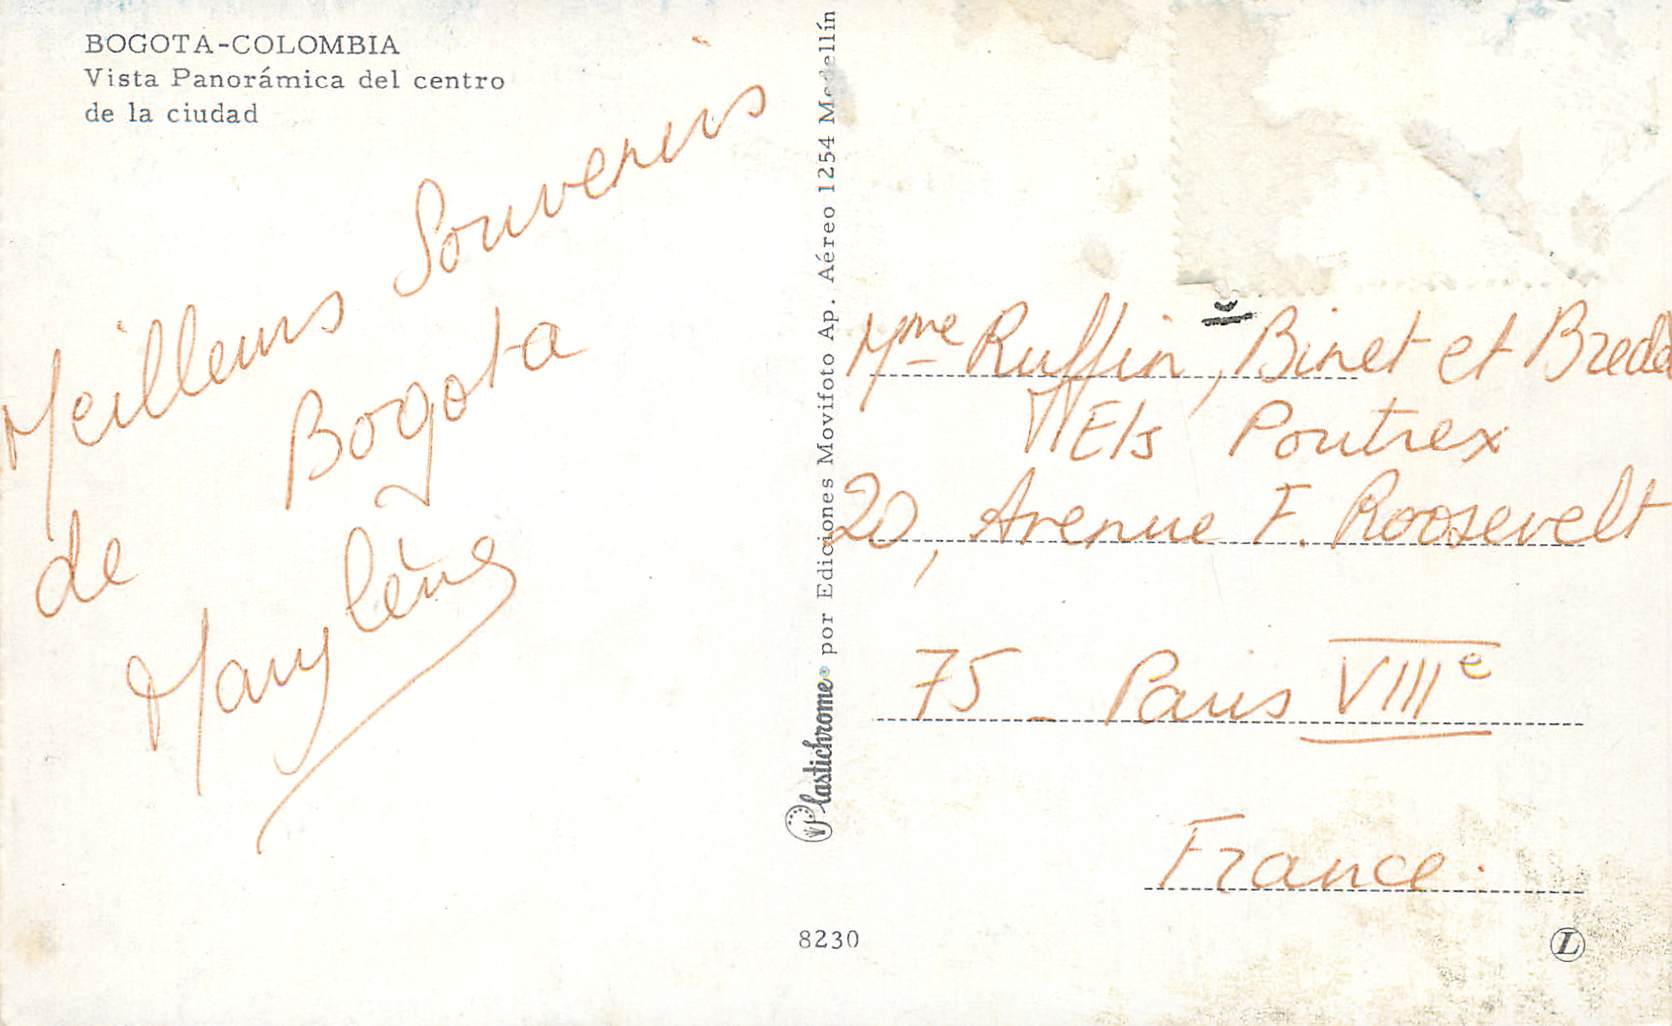 BOGOTA-COLOMBIA
Vista Panorámica del centro
de la ciudad
Meilleurs Souvenirs
de Bogota
Marylène
Plastichrome® por Ediciones Movifoto Ap. Aéreo 1254 Medellín
8230
Mme Ruffin, Binet et Breda
Ets Poutrex
20, Avenue F. Roosevelt
75 _ Paris VIIIe
France.
L